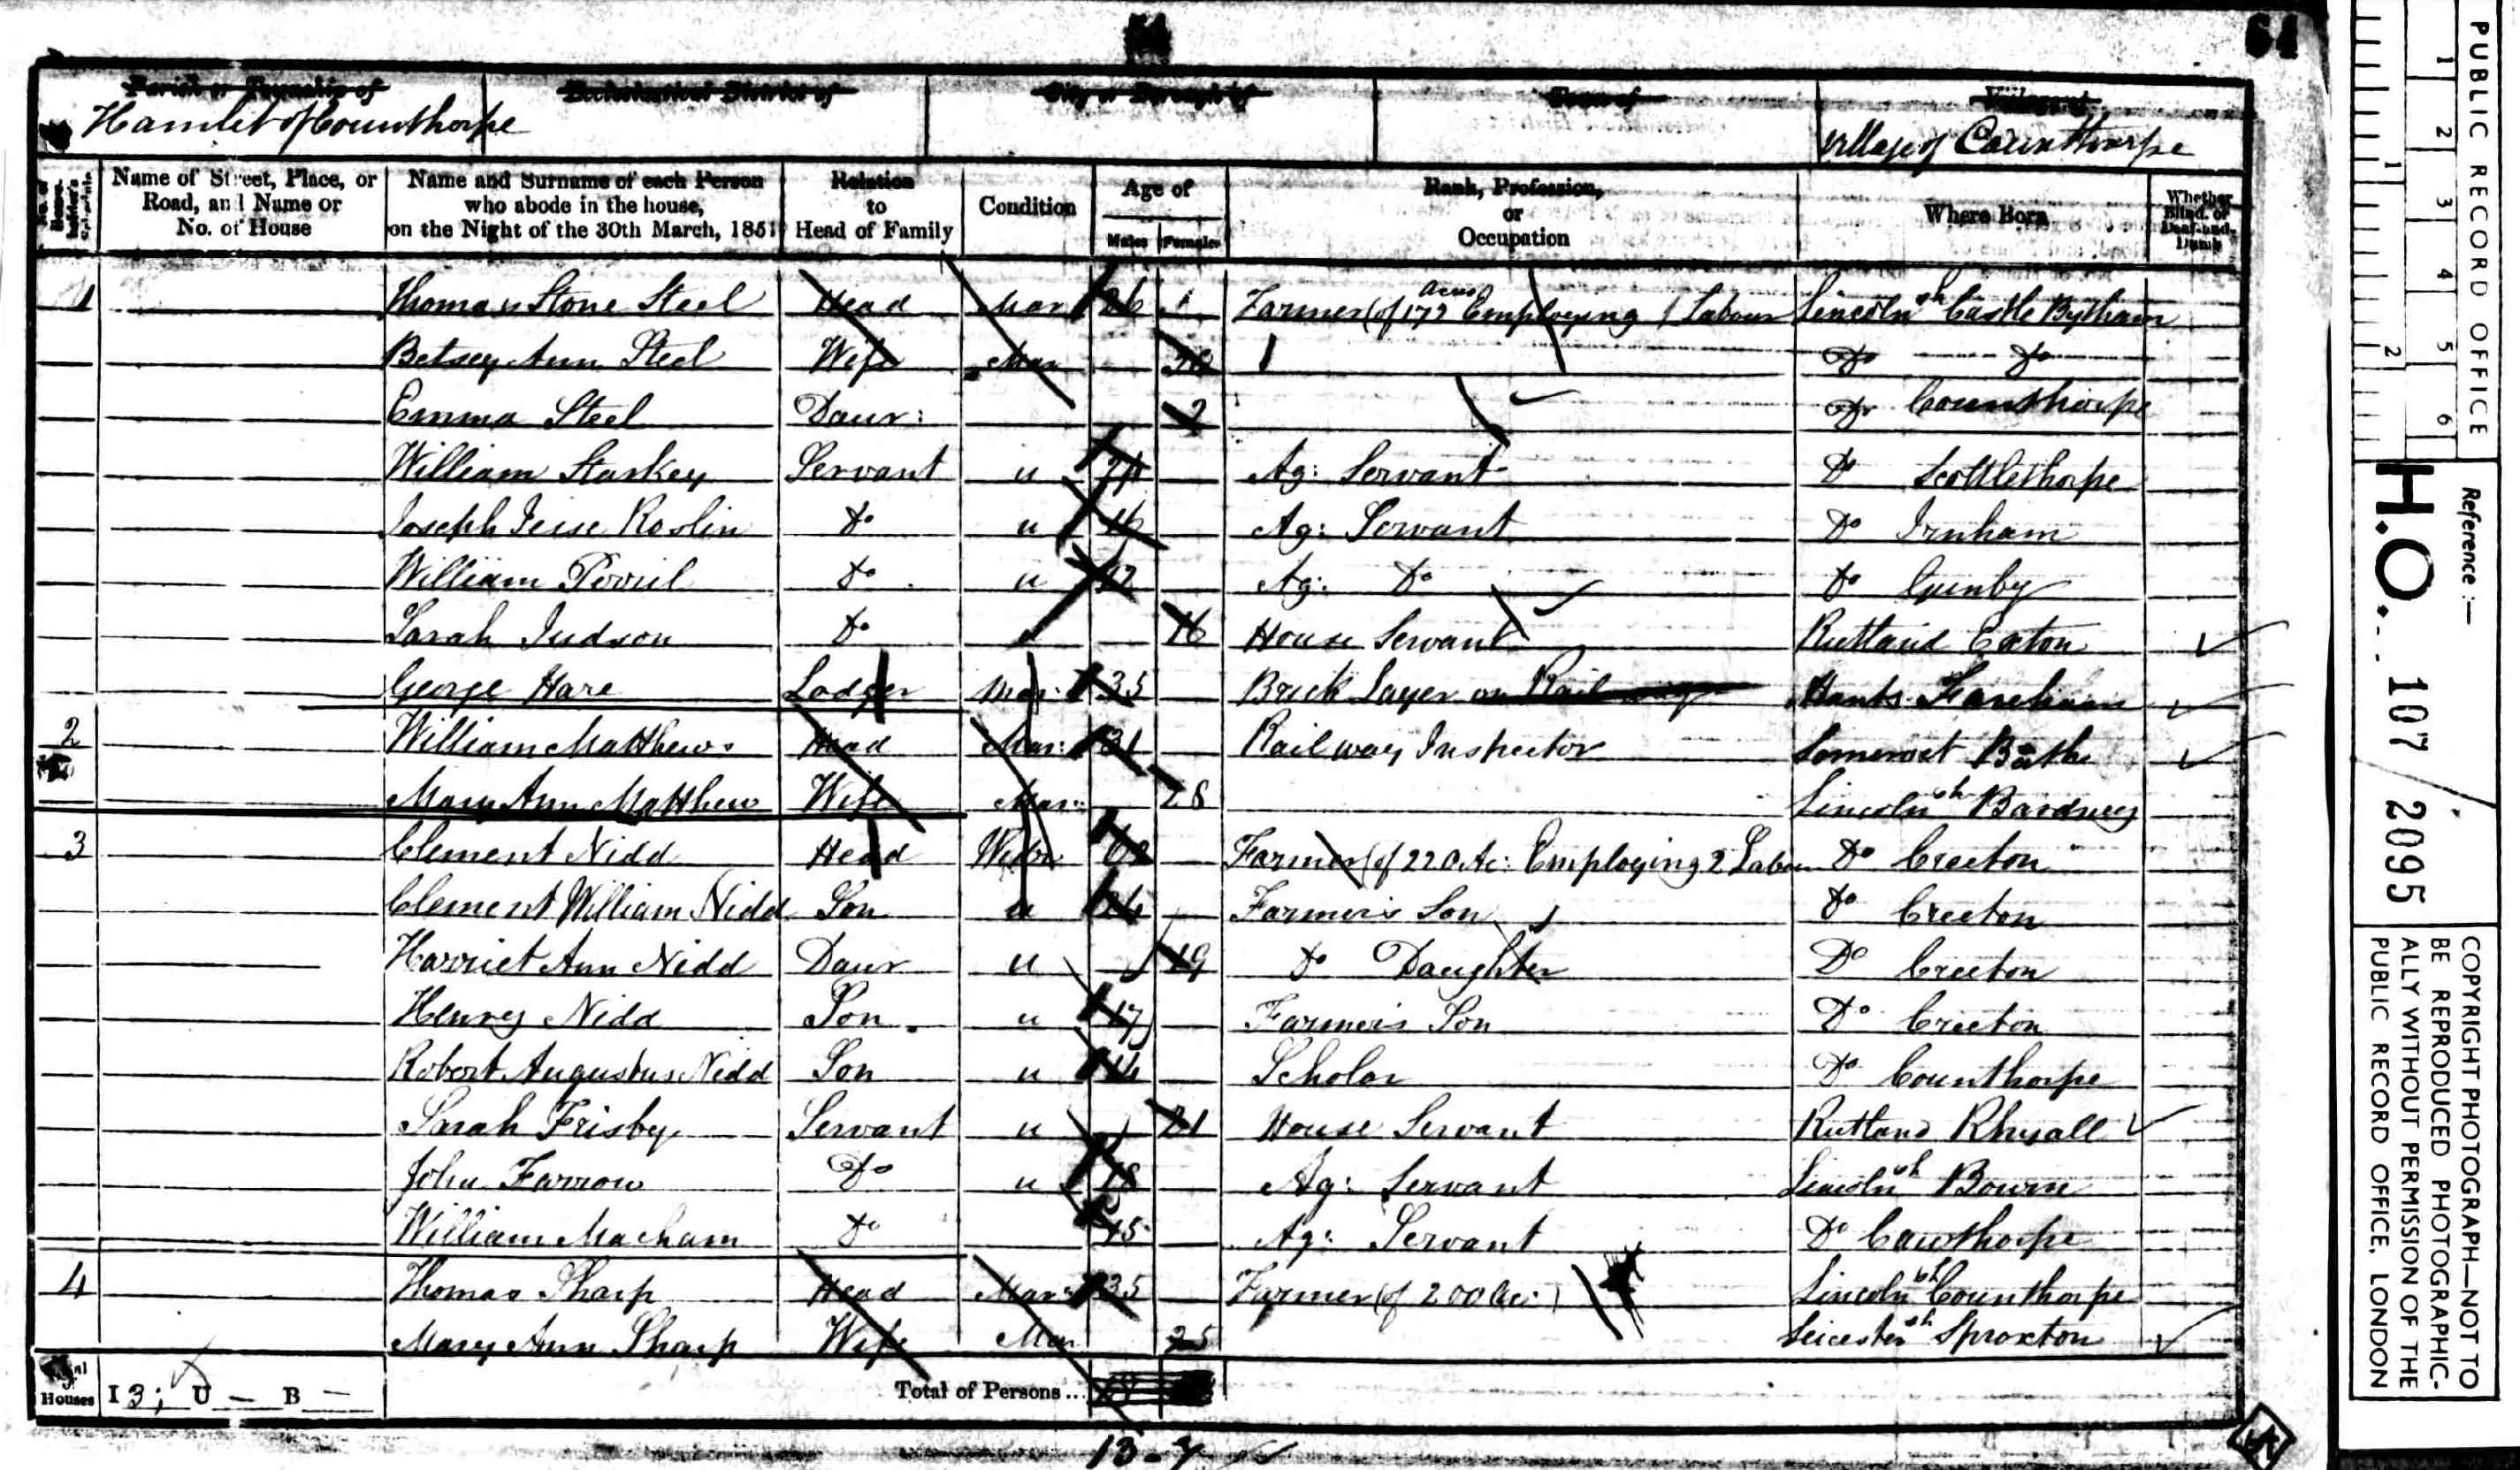 64
Parish or Township of Ecclesiastical District of City or Borough of Town of Village of
Hamlet of Counthorpe Village of Counthorpe
Name of Street, Place, or Road, and Name or No. of House
Name and Surname of each Person who abode in the house, on the Night of the 30th March, 1851
Relation to Head of Family
Condition
Age of
Males Females
Rank, Profession, or Occupation
Where Born
Whether Blind, or Deaf-and-Dumb
1 Thomas Stone Steel Head Mar 26 Farmer (of 172 acres Employing 1 Labour Lincolnsh Castle Bytham
Betsey Ann Steel Wife Mar Do Do
Emma Steel Daur: 2 Do Counthorpe
William Starkey Servant u Ag: Servant Do Scottlethorpe
Joseph Jesse Roslin Do u 16 Ag: Servant Do Irnham
William Do u 12 Ag: Do Do Gunby
Sarah Judson Do 16 House Servant Rutland Exton
George Hare Lodger Mar: 35 Brick Layer on Railway Hants Fareham
2 William Matthews Head Mar: 31 Railway Inspector Somerset Bath
Mary Ann Matthew Wife Mar: 28 Lincolnsh Bardney
3 Clement Nidd Head Widr Farmer (of 220 Ac: Employing 2 Labour Do Creeton
Clement William Nidd Son u 24 Farmer's Son Do Creeton
Harriet Ann Nidd Daur u 19 Do Daughter Do Creeton
Henry Nidd Son u 17 Farmer's Son Do Creeton
Robert Augustus Nidd Son u 14 Scholar Do Counthorpe
Sarah Frisby Servant u 21 House Servant Rutland Rhyall
John Farrow Do u 18 Ag: Servant Lincolnsh Bourn
William Macham Do 45 Ag: Servant Do Cawthorpe
4 Thomas Sharp Head Mar: 35 Farmer (of 200 Ac:) Lincolnsh Counthorpe
Mary Ann Sharp Wife Mar 25 Leicestersh Sproxton
Total Houses I 3; U — B — Total of Persons...
13 - 7
PUBLIC RECORD OFFICE
1 2 3 4 5 6
1 2
Reference :—
H.O. 107/2095
COPYRIGHT PHOTOGRAPH—NOT TO
BE REPRODUCED PHOTOGRAPHIC-
ALLY WITHOUT PERMISSION OF THE
PUBLIC RECORD OFFICE, LONDON